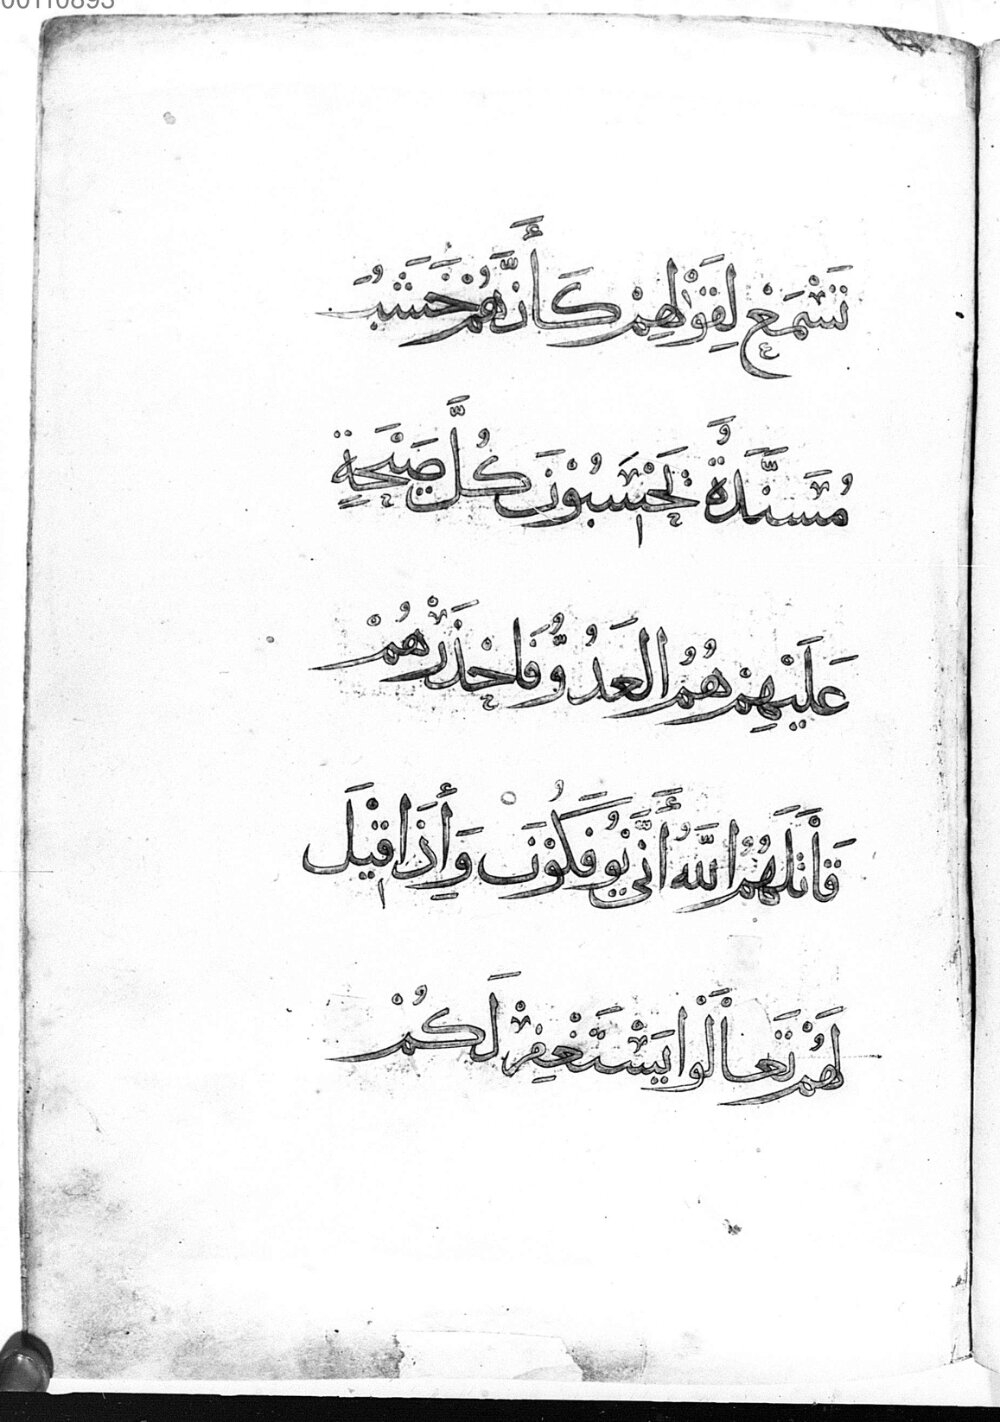 00110893
تَسْمَعْ لِقَوْلِهِمْ كَأَنَّهُمْ خُشُبٌ
مُسَنَّدَةٌ يَحْسَبُوْنَ كُلَّ صَيْحَةٍ
عَلَيْهِمْ هُمُ الْعَدُوُّ فَاحْذَرْهُمْ
قَاتَلَهُمُ اللَّهُ أَنَّى يُوفَكُوْنَ وَإِذَا قِيْلَ
لَهُمْ تَعَالَوْا يَسْتَغْفِرْ لَكُمْ